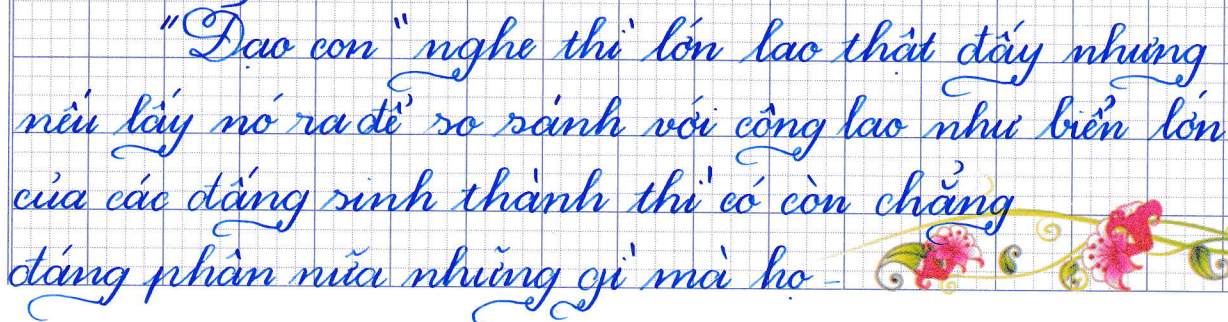 "Đạo con" nghe thì lớn lao thật đấy nhưng
nếu lấy nó ra để so sánh với công lao như biển lớn
của các đấng sinh thành thì có còn chẳng
đáng phân nửa những gì mà họ -